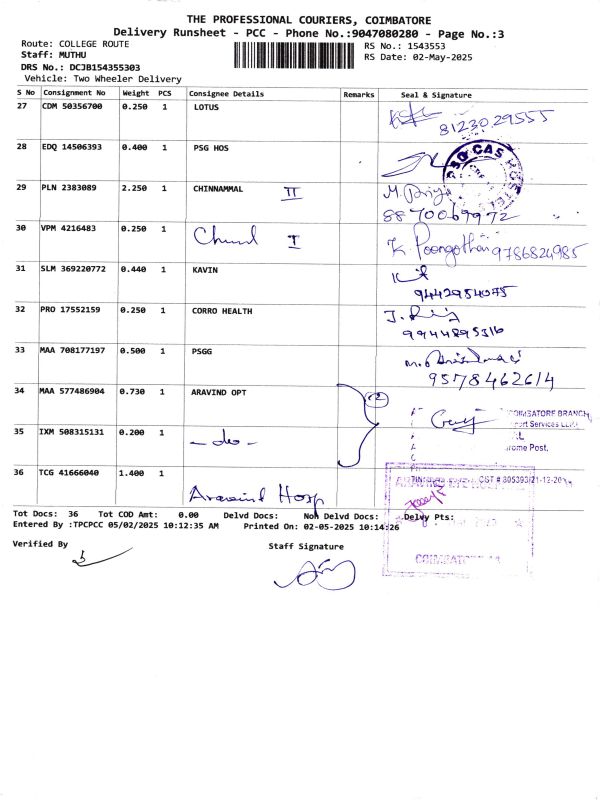 THE PROFESSIONAL COURIERS, COIMBATORE
Delivery Runsheet - PCC - Phone No.:9047080280 - Page No.:3
Route: COLLEGE ROUTE RS No.: 1543553
Staff: MUTHU RS Date: 02-May-2025
DRS No.: DCJB154355303
Vehicle: Two Wheeler Delivery
S No Consignment No Weight PCS Consignee Details Remarks Seal & Signature
27 CDM 50356700 0.250 1 LOTUS
8123029555
28 EDQ 14506393 0.400 1 PSG HOS
29 PLN 2383089 2.250 1 CHINNAMMAL II M. Priya
8870069972
30 VPM 4216483 0.250 1 I K. Poongothai 9786824985
31 SLM 369220772 0.440 1 KAVIN
9442954075
32 PRO 17552159 0.250 1 CORRO HEALTH
9944895316
33 MAA 708177197 0.500 1 PSGG
9578462614
34 MAA 577486904 0.730 1 ARAVIND OPT 2
COIMBATORE BRANCH,
35 IXM 508315131 0.200 1 - do -
36 TCG 41666040 1.400 1 Aravind Hosp
Tot Docs: 36 Tot COD Amt: 0.00 Delvd Docs: Non Delvd Docs: Delvy Pts:
Entered By :TPCPCC 05/02/2025 10:12:35 AM Printed On: 02-05-2025 10:14:26
Verified By Staff Signature